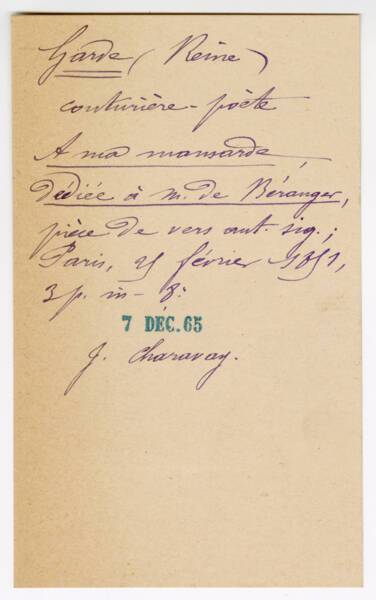 Garde (Reine)
couturière-poète
A ma mansarde,
Dédiée à M. de Béranger,
pièce de vers aut. sig.;
Paris, 25 février 1851,
3 p. in-8.
7 DÉC. 65
J. Charavay.